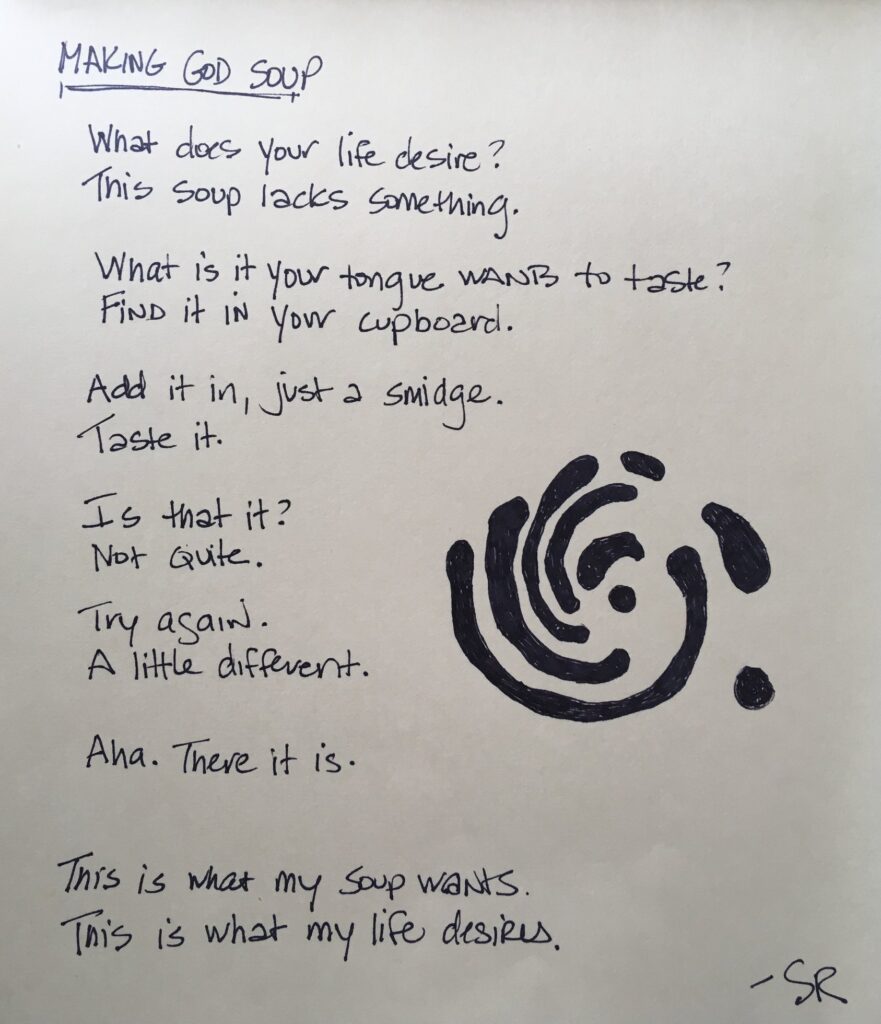 MAKING GOD SOUP
What does your life desire?
This soup lacks something.
What is it your tongue WANTS to taste?
FIND it IN your cupboard.
Add it in, just a smidge.
Taste it.
Is that it?
Not Quite.
Try again.
A little different.
Aha. There it is.
This is what my soup wants.
This is what my life desires.
-SR